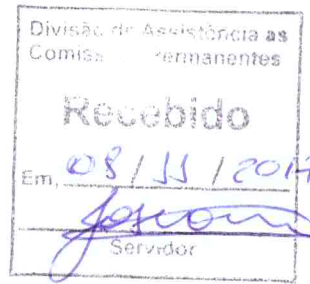 Divisão de Assistência as
Comissões Permanentes
Recebido
Em, 08 / 11 / 2017
Servidor